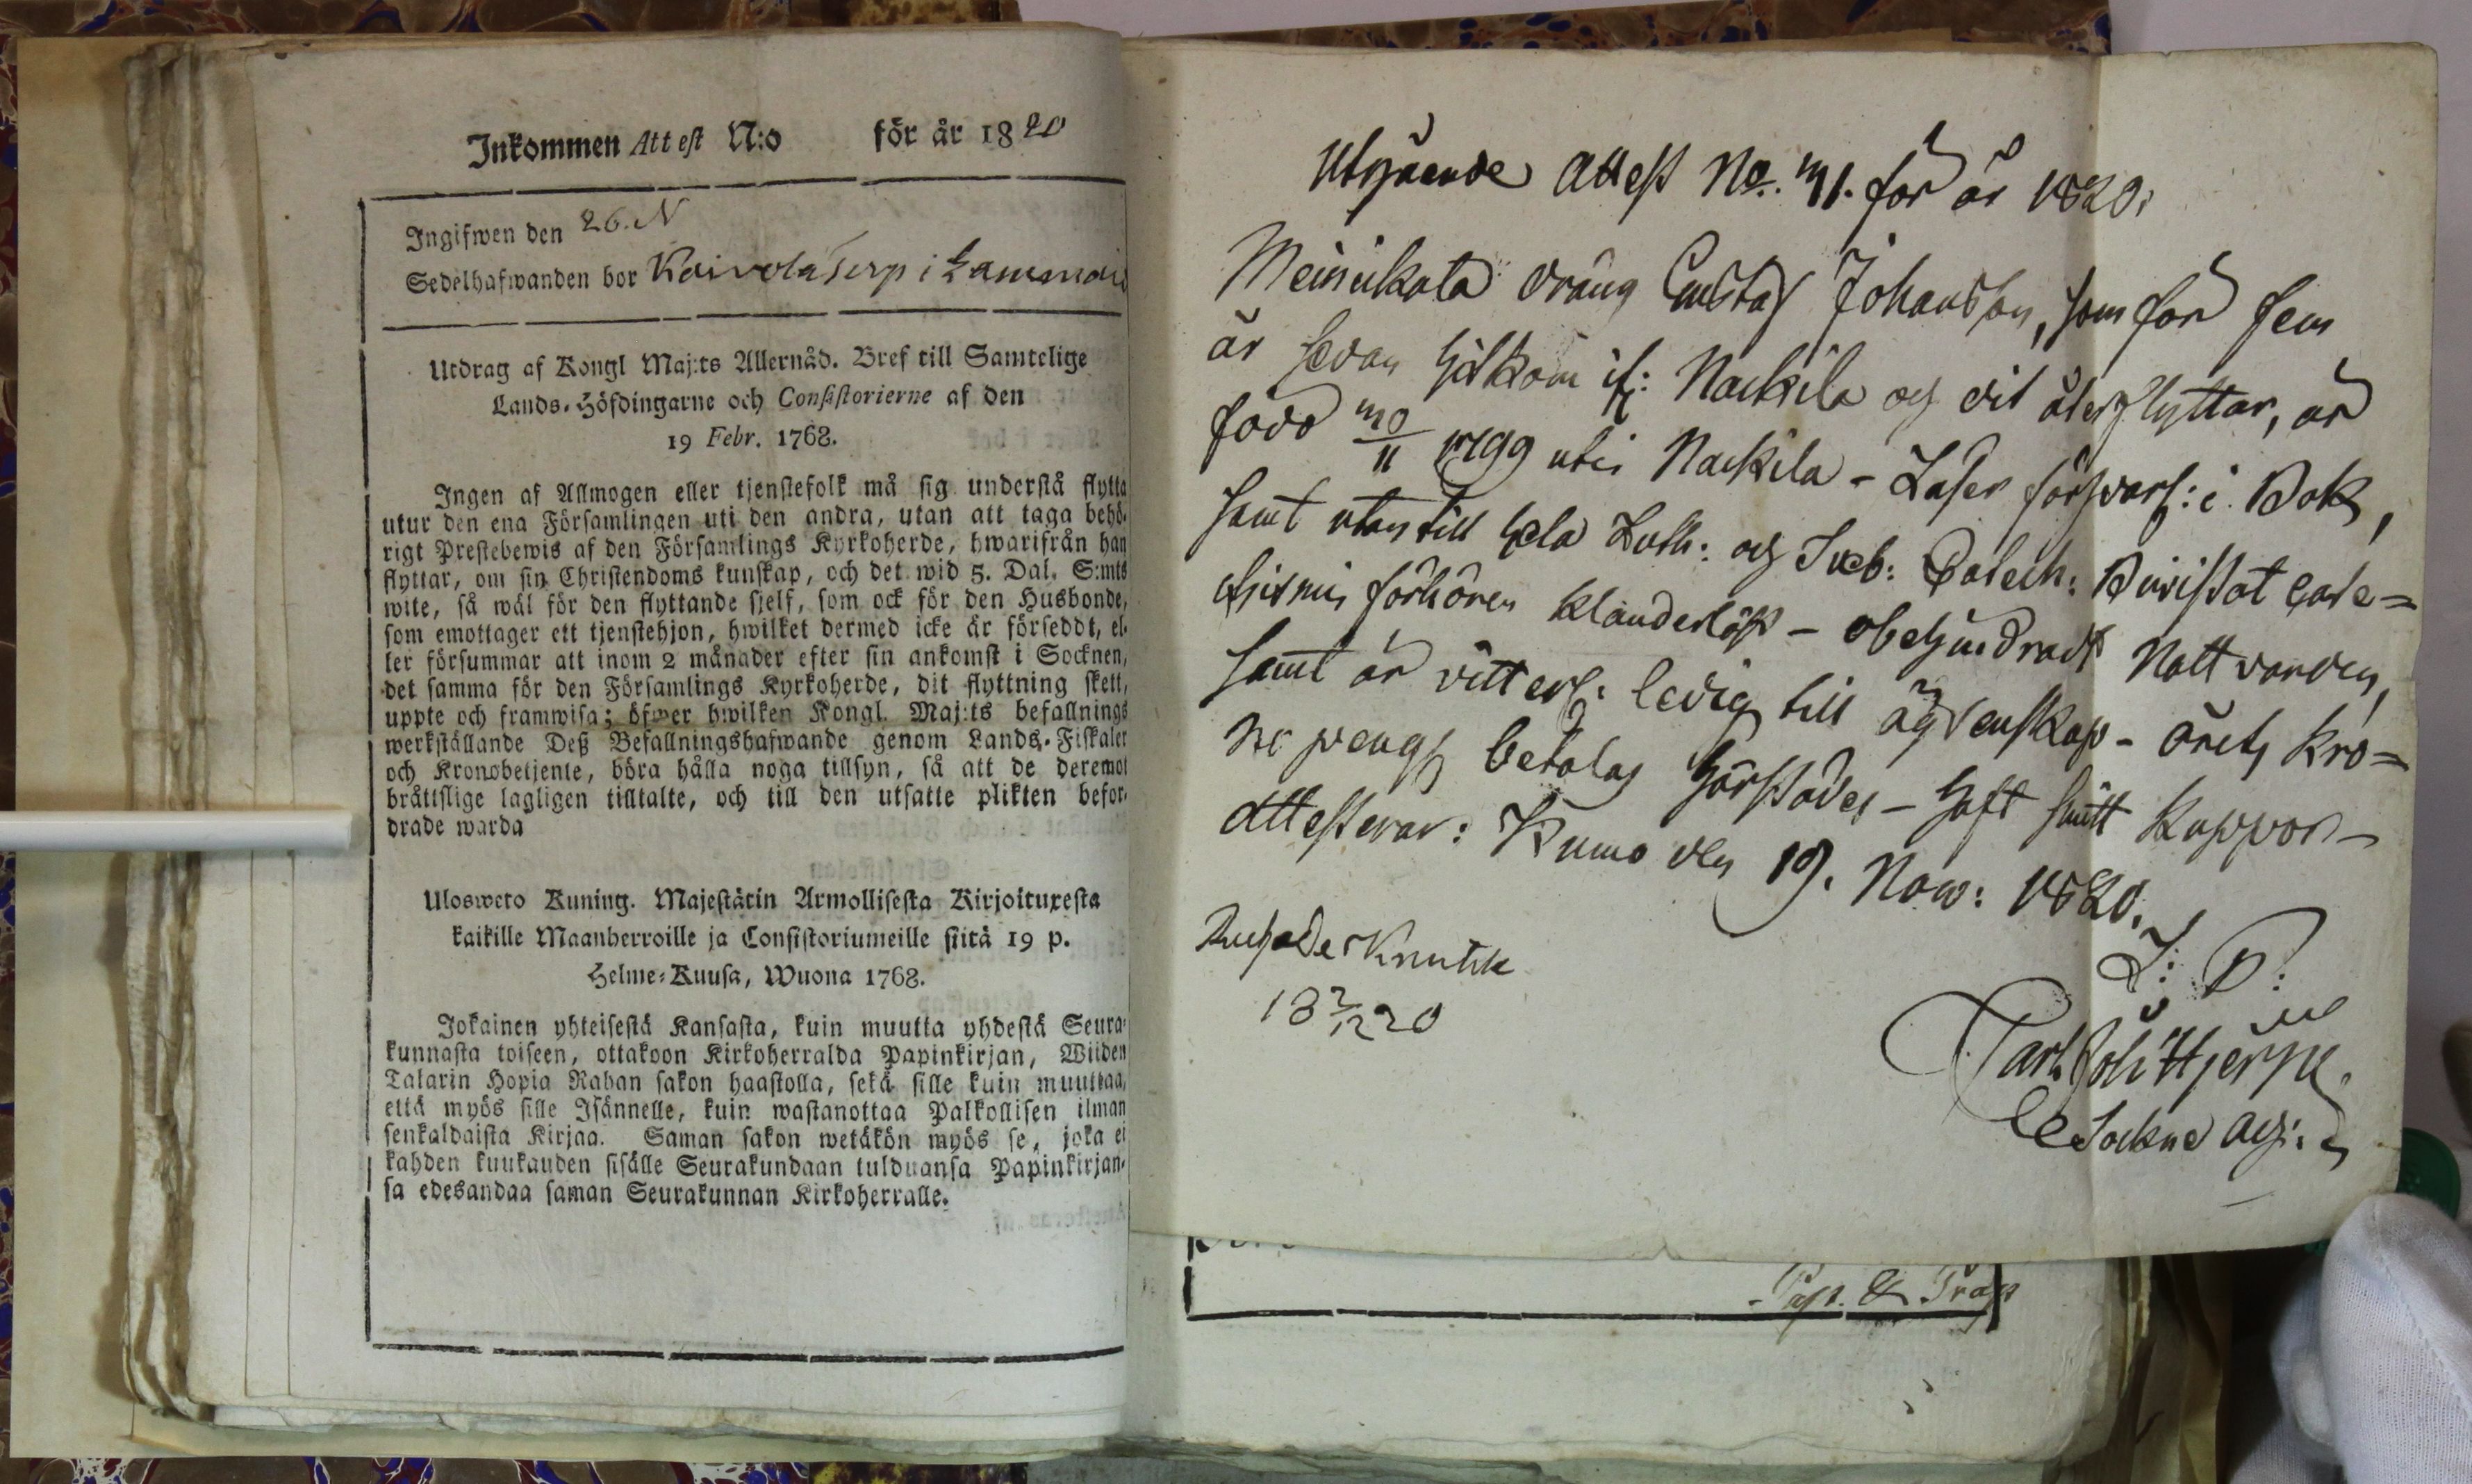 Inkommen Attest N:o för år 1820
Ingifwen den 26. N
Sedelhafwanden bor Kaivola Torp i Lammais
Utdrag af Kongl Maj:ts Allernåd. Bref till Samtelige
Lands-Höfdingarne och Consistorierne af den
19 Febr. 1768.
Ingen af Allmogen eller tjenstefolk må sig understå flytta
utur den ena Församlingen uti den andra, utan att taga behö-
rigt Prestebewis af den Församlings Kyrkoherde, hwarifrån han
flyttar, om sin Christendoms kunskap, och det wid 5. Dal. S:mts
wite, så wäl för den flyttande sjelf, som ock för den Husbonde,
som emottager ett tjenstehjon, hwilket dermed icke är förseddt, el-
ler försummar att inom 2 månader efter sin ankomst i Socknen,
det samma för den Församlings Kyrkoherde, dit flyttning skett,
uppte och framwisa; öfwer hwilken Kongl. Maj:ts befallnings
werkställande Deß Befallningshafwande genom Lands-Fiskaler
och Kronobetjente, böra hålla noga tillsyn, så att de deremot
bråttslige lagligen tilltalte, och till den utsatte plikten befor-
drade warda
Ulosweto Kuning. Majestätin Armollisesta Kirjoituxesta
kaikille Maanherroille ja Consistoriumeille siitä 19 p.
Helme-Kuusa, Wuona 1768.
Jokainen yhteisestä Kansasta, kuin muutta yhdestä Seura-
kunnasta toiseen, ottakoon Kirkoherralda Papinkirjan, Wiiden
Talarin Hopia Rahan sakon haastolla, sekä sille kuin muuttaa,
että myös sille Isännelle, kuin wastanottaa Palkollisen ilman
senkaldaista Kirjaa. Saman sakon wetäkön myös se, joka ei
kahden kuukauden sisälle Seurakundaan tulduansa Papinkirjan-
sa edesandaa saman Seurakunnan Kirkoherralle.
Utgående Attest No. 71. för år 1820.
dräng Gustaf Johansson, som för fem
år sedan hitkom if: Nackila och dit återflyttar, är
född 1799 uti Nackila - Läser försvarl: i Bok,
samt utantill hela Luth: och Sveb: Catech: Bivistat Cate-
chismi förhören klanderlöst - obehindradt Nattvarden,
samt är vitterl: ledig till ägtenskap - årets kro-
no pengs betalas härstädes - haft smitt koppor -
Attesterar: Kumo den 19. Now: 1820.
L: P:
Carl Joh: Hjerpe
Sockne Adj:
18 2/12 20